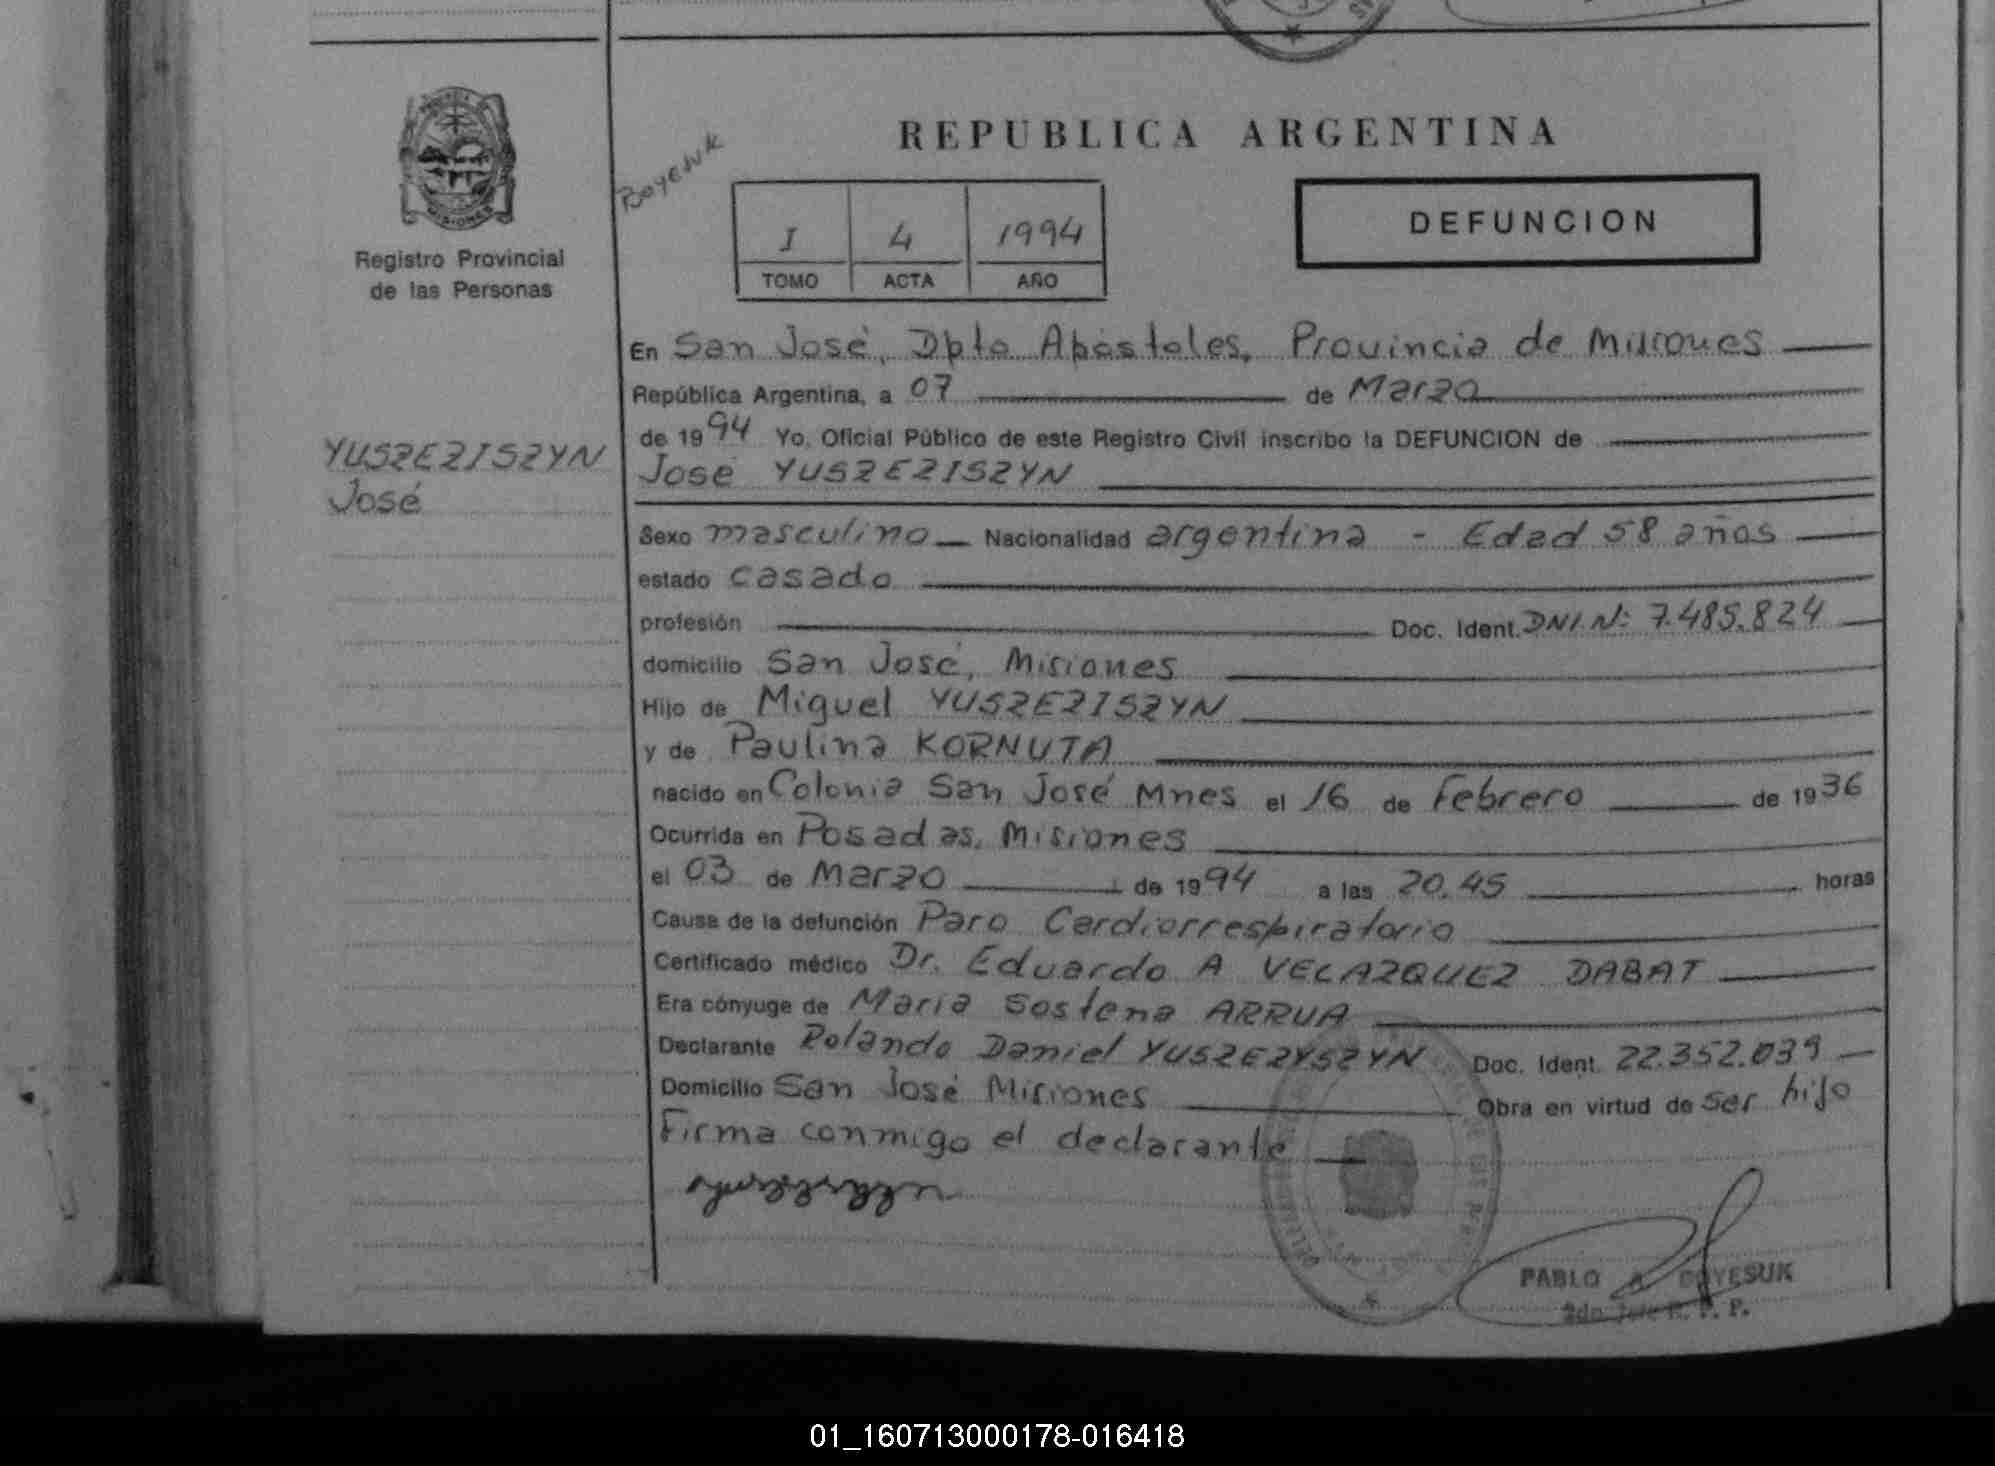 REPUBLICA ARGENTINA
MISIONES
Registro Provincial
de las Personas
I 4 1994
TOMO ACTA AÑO
DEFUNCION
YUSZEZISZYN
José
En San José, Dpto Apóstoles, Provincia de Misiones
República Argentina, a 07 de Marzo
de 1994 Yo, Oficial Público de este Registro Civil inscribo la DEFUNCION de
José YUSZEZISZYN
Sexo masculino Nacionalidad argentina - Edad 58 años
estado casado
profesión Doc. Ident. DNI. Nº: 7.485.824
domicilio San José, Misiones
Hijo de Miguel YUSZEZISZYN
y de Paulina KORNUTA
nacido en Colonia San José Mnes el 16 de Febrero de 1936
Ocurrida en Posadas, Misiones
el 03 de Marzo de 1994 a las 20.45 horas
Causa de la defunción Paro Cardiorrespiratorio
Certificado médico Dr. Eduardo A VELAZQUEZ DABAT
Era cónyuge de María Sostena ARRUA
Declarante Rolando Daniel YUSZEZYSZYN Doc. Ident. 22.352.039
Domicilio San José Misiones Obra en virtud de ser hijo
Firma conmigo el declarante
PABLO A. BOYESUK
2do. Jefe R. P. P.
01_160713000178-016418